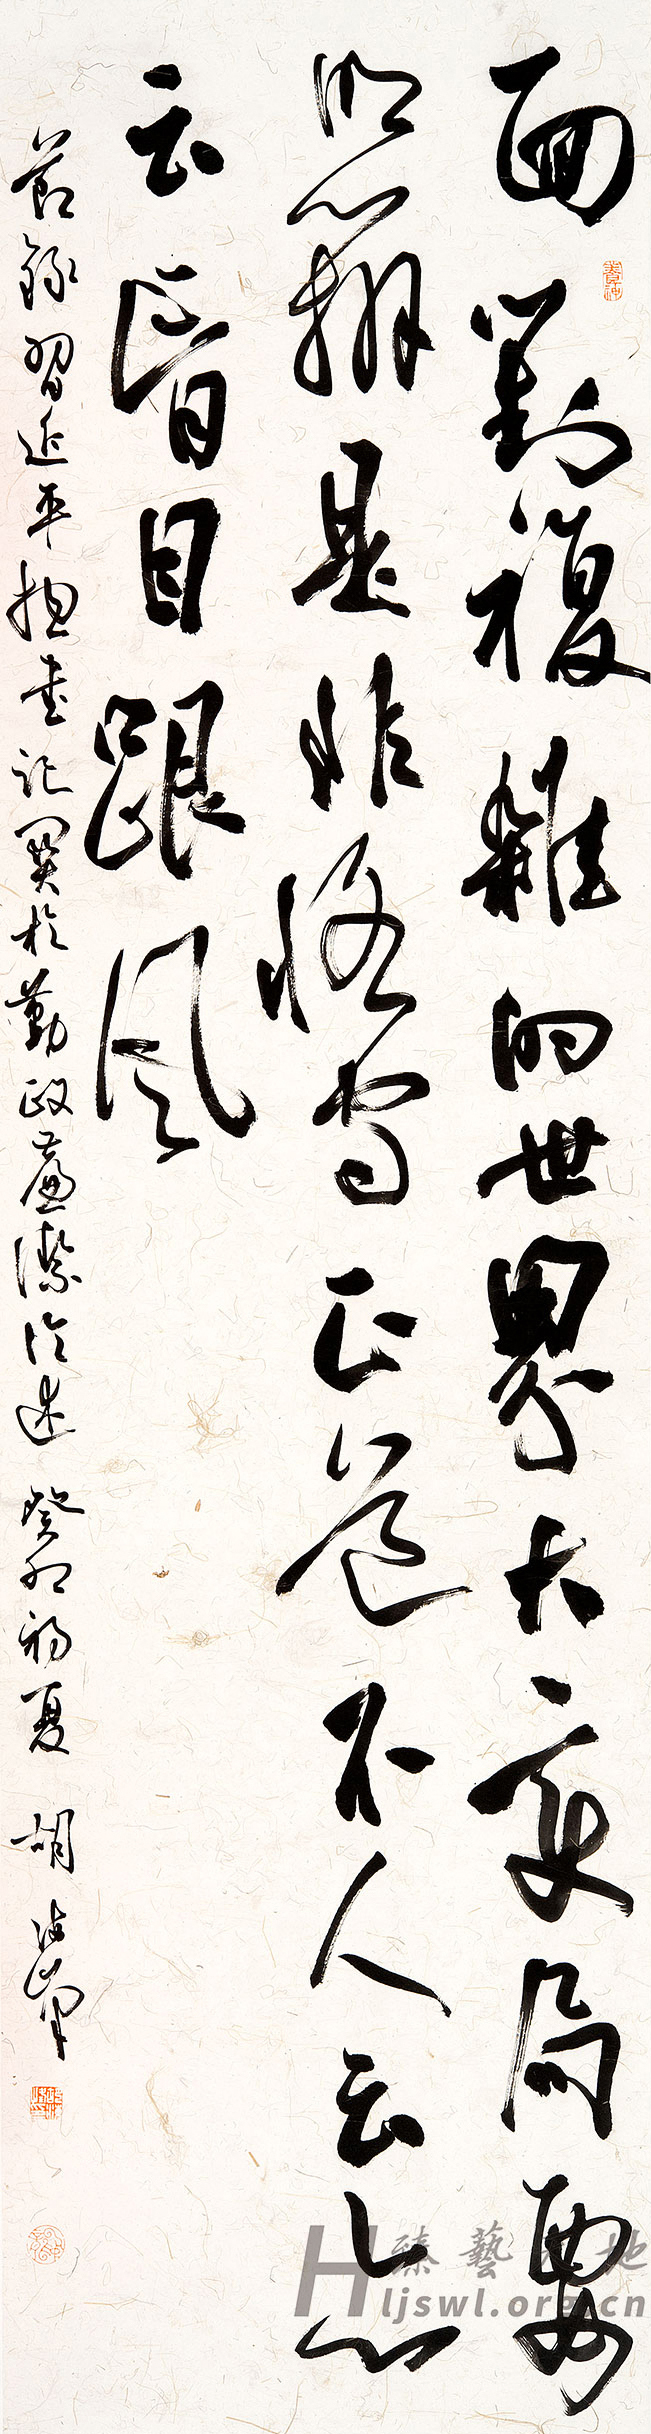 面對複雜的世界大變局要
明辨是非恪守正道不人云亦
云盲目跟風
節錄習近平總書記關於勤政廉潔論述 癸卯初夏 胡峰
臻藝地
Hljswl.org.cn